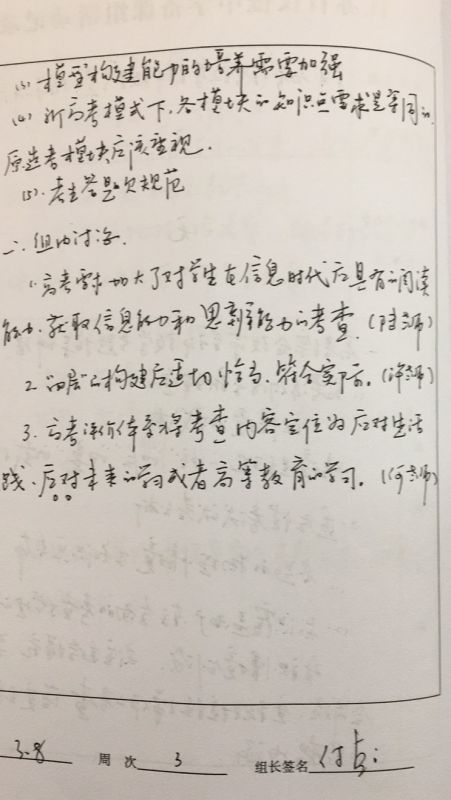 (3) 模型构建能力的培养需要加强
(4) 新高考模式下,各模块的知识点需求是等同的,
原选考模块应该重视.
(5). 考生答题欠规范
二. 组内讨论.
1. 高考需求加大了对学生在信息时代应具有的阅读
能力、获取信息能力和思辨能力的考查.(陆老师)
2. "四层"的构建应适切恰当,符合实际。(许老师)
3. 高考评价体系将考查内容定位为应对生活
践、应对未来的学习或者高等教育的学习。(何老师)
3.8 周 次 3 组长签名